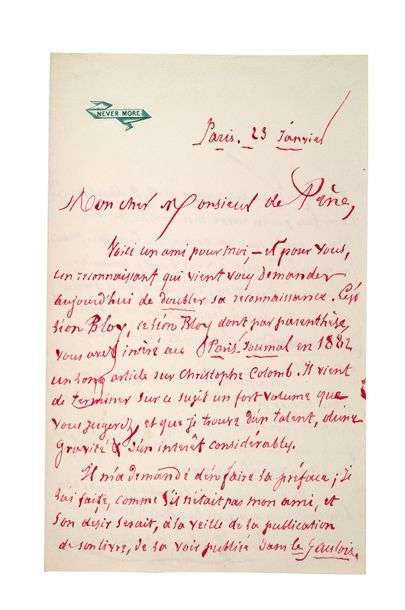 NEVER MORE
Paris, 23 Janvier
Mon cher Monsieur de Pène,
Voici un ami pour moi – et pour vous,
un reconnaissant qui vient vous demander
aujourd'hui de doubler sa reconnaissance. C'est
Léon Bloy, ce Léon Bloy dont par parenthèse,
vous avez inséré au Paris Journal en 1882
un long article sur Christophe Colomb. Il vient
de terminer sur ce sujet un fort volume que
vous jugerez, et que je trouve d'un talent, d'une
Gravité & d'un intérêt considérables.
Il m'a demandé d'en faire la préface; je
l'ai faite, comme s'il n'était pas mon ami, et
son désir serait, à la veille de la publication
de son livre, de la voir publiée dans le Gaulois.